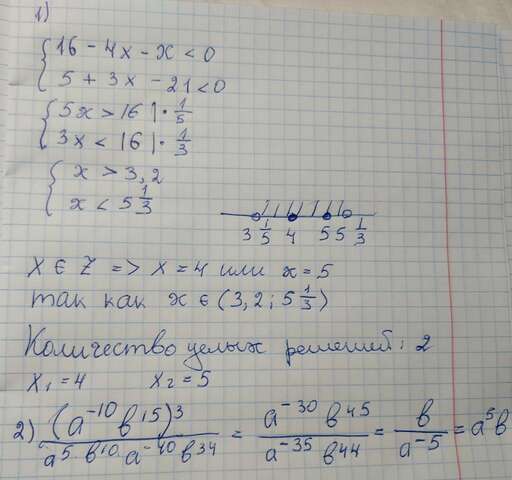 1)
{ 16 - 4x - x < 0
{ 5 + 3x - 21 < 0
{ 5x > 16 | · 1/5
{ 3x < 16 | · 1/3
{ x > 3,2
{ x < 5 1/3
3 1/5 4 5 5 1/3
X ∈ Z => x = 4 или x = 5
так как x ∈ (3,2 ; 5 1/3)
Количество целых решений: 2
x₁ = 4 x₂ = 5
2) (a⁻¹⁰ b¹⁵)³ / (a⁵ b¹⁰ a⁻⁴⁰ b³⁴) = a⁻³⁰ b⁴⁵ / (a⁻³⁵ b⁴⁴) = b / a⁻⁵ = a⁵b